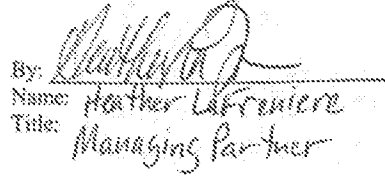 By:
Name: Heather LaFreniere
Title: Managing Partner